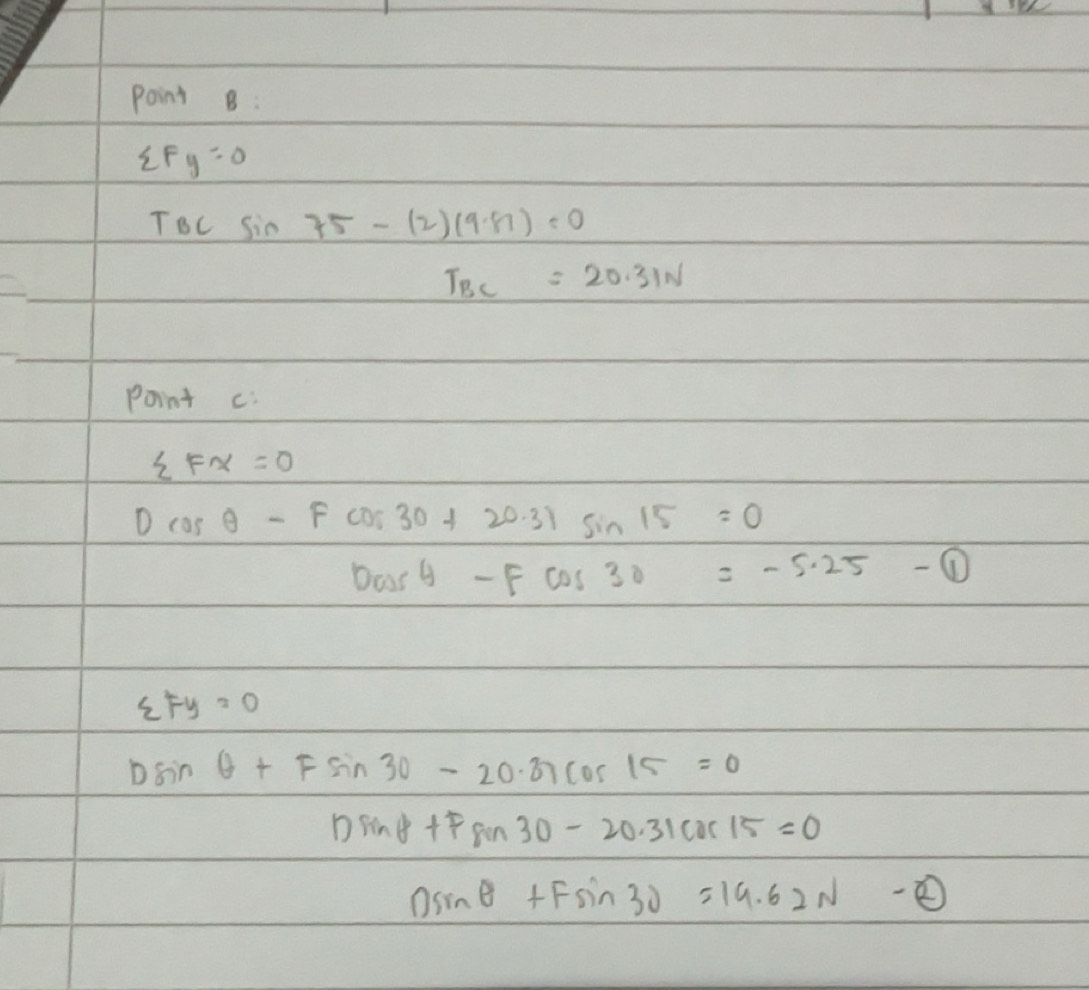 Point B:
ΣFy=0
TBC sin 75 - (2)(9.81) = 0
TBC = 20.31N
Point C:
ΣFx = 0
D cos θ - F cos 30 + 20.31 sin 15 = 0
Dcos θ - F cos 30 = - 5.25 - ①
ΣFy = 0
Dsin θ + F sin 30 - 20.31 cos 15 = 0
Dsinθ + F sin 30 - 20.31 cos 15 = 0
Dsin θ + F sin 30 = 19.62 N - ②